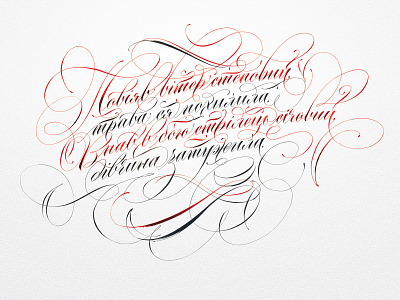 Повіяв вітер степовий,
трава ся похилила
Впав в бою стрілець січовий,
дівчина затужила